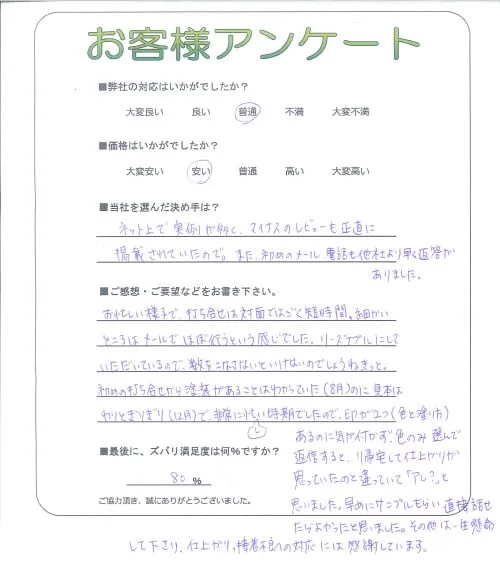 お客様アンケート
■弊社の対応はいかがでしたか？
大変良い 良い 普通 不満 大変不満
■価格はいかがでしたか？
大変安い 安い 普通 高い 大変高い
■当社を選んだ決め手は？
ネット上で実例が多く、マイナスのレビューも正直に
掲載されていたので。また、初めのメール、電話も他社より早く返答が
ありました。
■ご感想・ご要望などをお書き下さい。
お忙しい様子で、打ち合せは対面ではごく短時間。細かい
ところはメールでほぼ行うという感じでした。リーズナブルにして
いただいているので、数をこなさないといけないのでしょうねきっと。
初めの打ち合せから塗装があることはわかっていた(8月)のに見本は
わりとぎりぎり(12月)で、非常に忙しい時期でしたので、印が2つ(色と塗り方)
あるのに気が付かず、色のみ選んで
返信すると、り帰宅して仕上がりが
思っていたのと違っていて「アレ?」と
思いました。早めにサンプルもらい直接話せ
たらよかったと思いました。その他は一生懸命
して下さり、仕上がり、接着不良への対応には感謝しています。
■最後に、ズバリ満足度は何%ですか？
80 %
ご協力頂き、誠にありがとうございました。